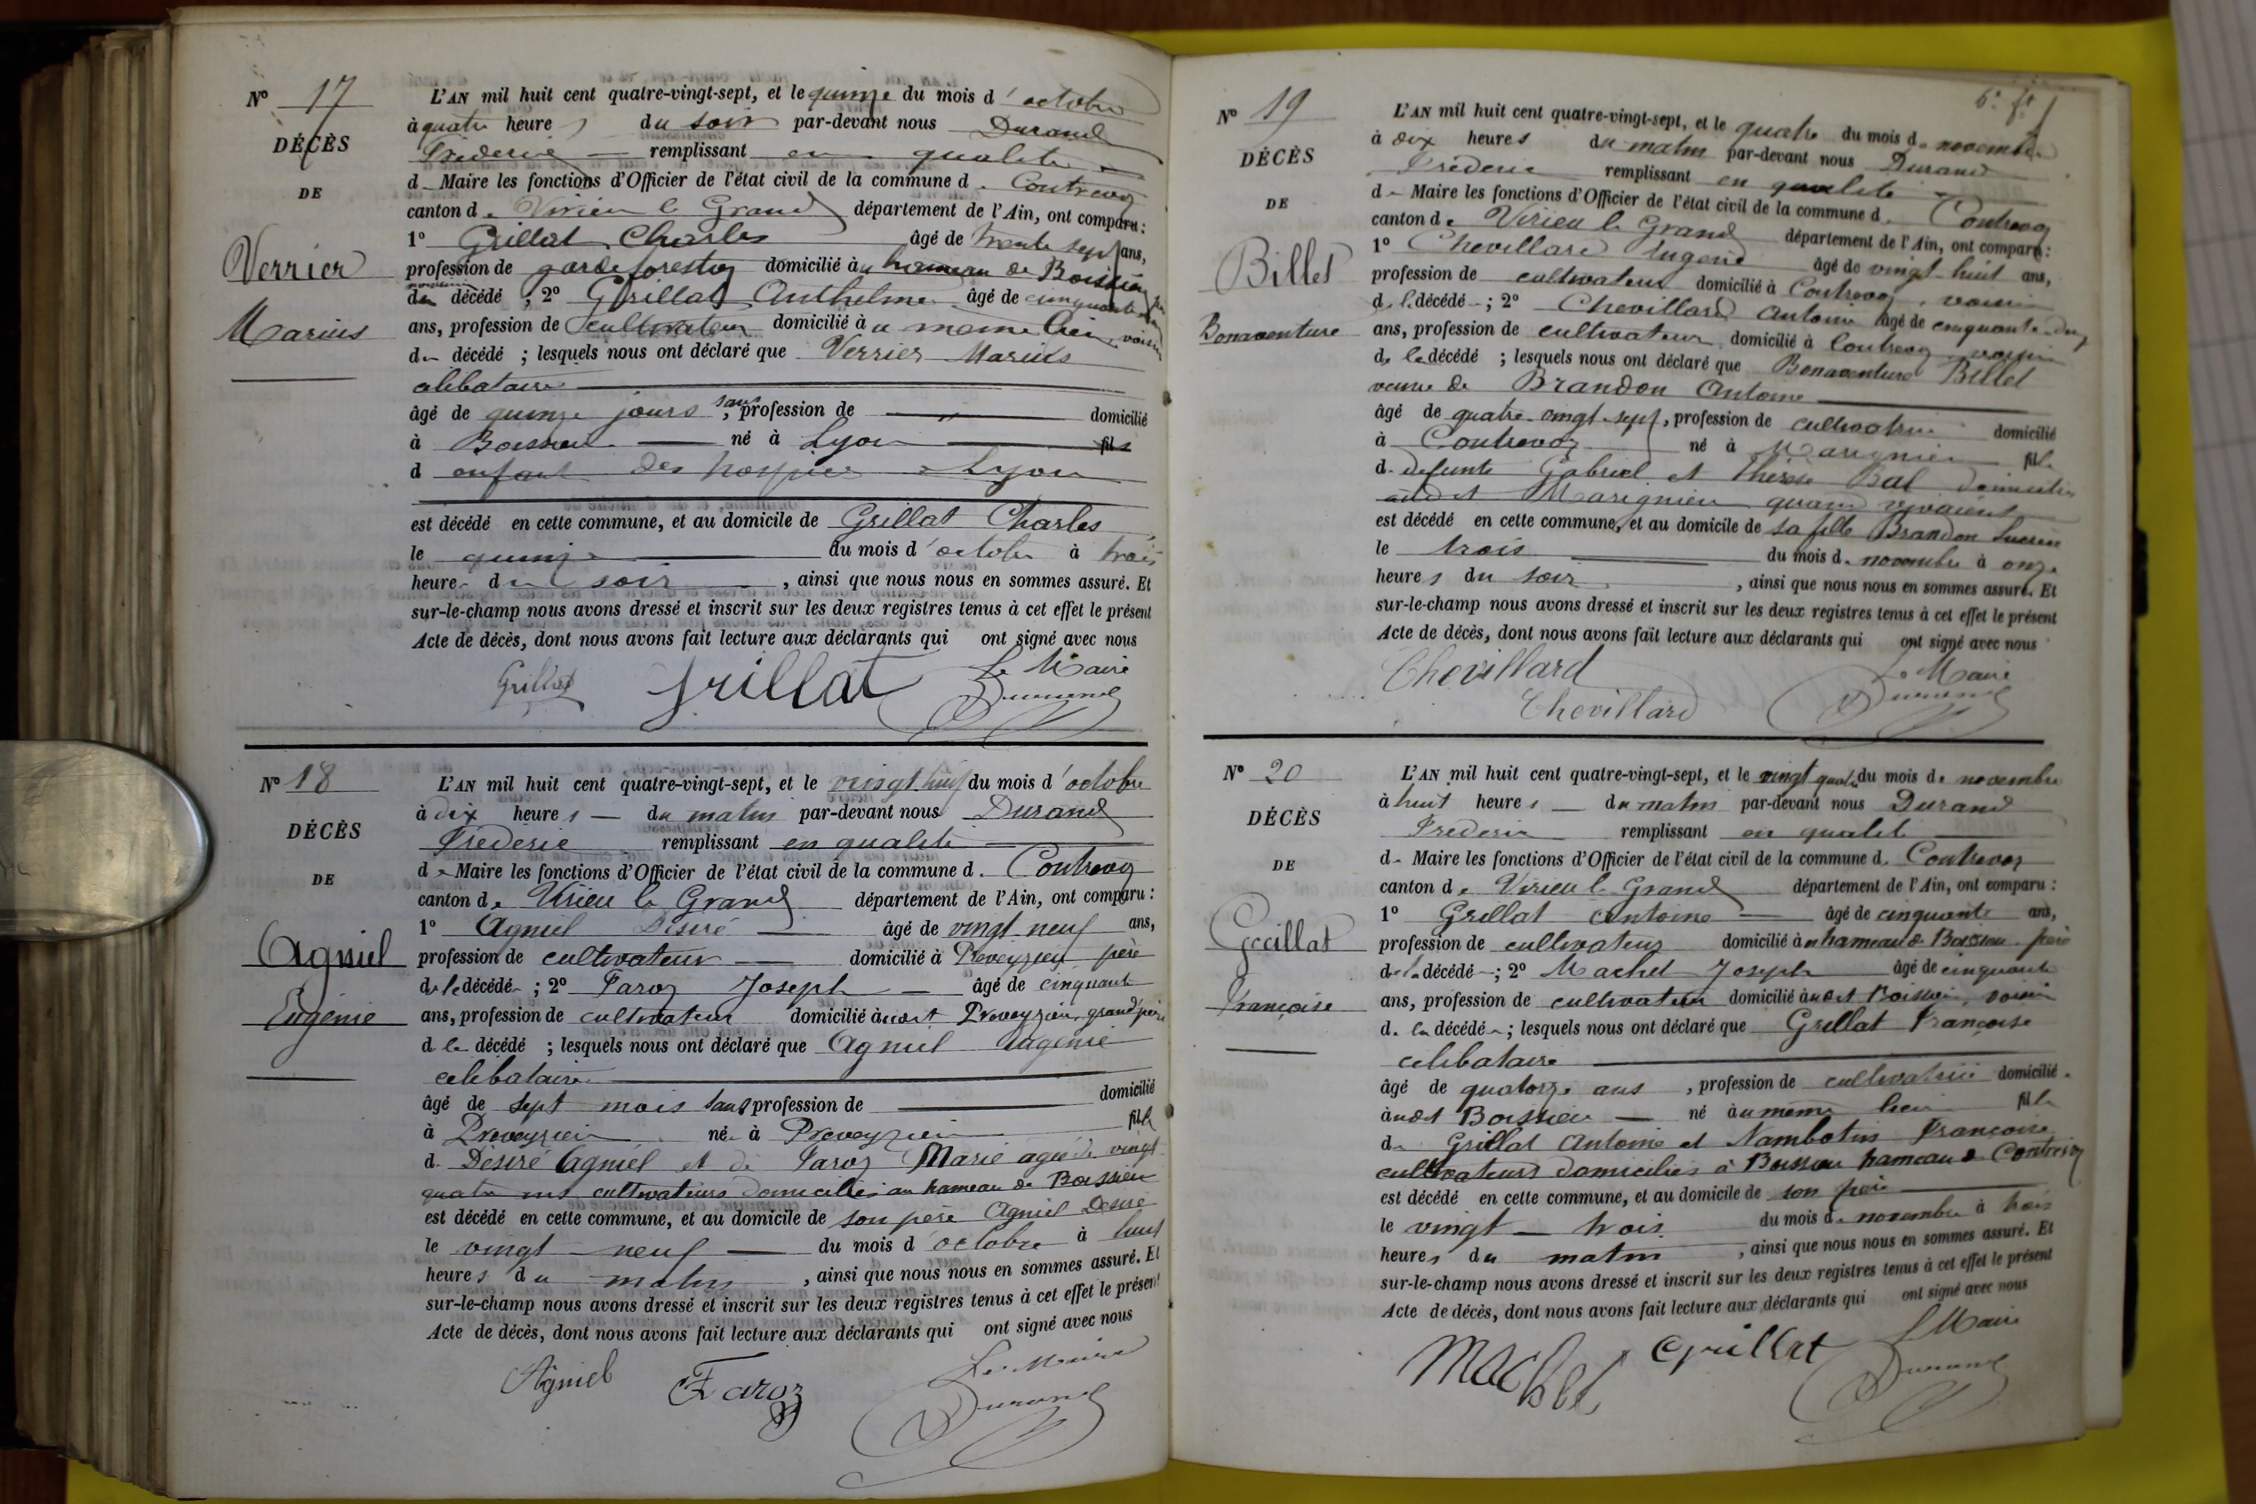 N° 17
DÉCÈS
DE
Verrier
Marius
L'AN mil huit cent quatre-vingt-sept, et le quinze du mois d'octobre
à quatre heures du soir par-devant nous Durand
Fréderic remplissant en qualité
de Maire les fonctions d'Officier de l'état civil de la commune de Contrevoz
canton de Virieu le Grand département de l'Ain, ont comparu :
1° Grillat Charles âgé de trente sept ans,
profession de garde forestier domicilié au hameau de Boissieu
du décédé ; 2° Grillat Anthelme âgé de cinquante
ans, profession de cultivateur domicilié au même lieu, voisin
du décédé ; lesquels nous ont déclaré que Verrier Marius
célibataire
âgé de quinze jours, sans profession de domicilié
à Boissieu né à Lyon fils
d enfant des hospices Lyon
est décédé en cette commune, et au domicile de Grillat Charles
le quinze du mois d'octobre à trois
heures du soir, ainsi que nous nous en sommes assuré. Et
sur-le-champ nous avons dressé et inscrit sur les deux registres tenus à cet effet le présent
Acte de décès, dont nous avons fait lecture aux déclarants qui ont signé avec nous
Grillat Grillat Le Maire
Durand
N° 18
DÉCÈS
DE
Agniel
Eugénie
L'AN mil huit cent quatre-vingt-sept, et le vingt neuf du mois d'octobre
à dix heures du matin par-devant nous Durand
Fréderic remplissant en qualité
de Maire les fonctions d'Officier de l'état civil de la commune de Contrevoz
canton de Virieu le Grand département de l'Ain, ont comparu :
1° Agniel Désiré âgé de vingt neuf ans,
profession de cultivateur domicilié à Preveyzieu père
de la décédée ; 2° Faroz Joseph âgé de cinquante
ans, profession de cultivateur domicilié audit Preveyzieu, grand'père
de la décédé ; lesquels nous ont déclaré que Agniel Eugénie
célibataire
âgé de sept mois sans profession de domicilié
à Preveyzieu née à Preveyzieu fille
de Désiré Agniel et de Faroz Marie agée de vingt
quatre ans cultivateurs domiciliés au hameau de Boissieu
est décédé en cette commune, et au domicile de son père Agniel Désiré
le vingt neuf du mois d'octobre à huit
heures du matin, ainsi que nous nous en sommes assuré. Et
sur-le-champ nous avons dressé et inscrit sur les deux registres tenus à cet effet le présent
Acte de décès, dont nous avons fait lecture aux déclarants qui ont signé avec nous
Agniel Faroz Le Maire
Durand
N° 19
DÉCÈS
DE
Billet
Bonaventure
L'AN mil huit cent quatre-vingt-sept, et le quatre du mois de novembre
à dix heures du matin par-devant nous Durand
Fréderic remplissant en qualité
de Maire les fonctions d'Officier de l'état civil de la commune de Contrevoz
canton de Virieu le Grand département de l'Ain, ont comparu :
1° Chevillard Eugène âgé de vingt-huit ans,
profession de cultivateur domicilié à Contrevoz, voisin
de la décédée ; 2° Chevillard Antoine âgé de cinquante-deux
ans, profession de cultivateur, domicilié à Contrevoz, voisin
de la décédé ; lesquels nous ont déclaré que Bonaventure Billet
veuve de Brandon Antoine
âgé de quatre-vingt-sept, profession de cultivatrice domicilié
à Contrevoz né à Marignieu fille
de défunts Gabriel et Thérèse Bal domiciliés
audit Marignieu quand vivaient
est décédé en cette commune, et au domicile de sa fille Brandon
le trois du mois de novembre à onze
heures du soir, ainsi que nous nous en sommes assuré. Et
sur-le-champ nous avons dressé et inscrit sur les deux registres tenus à cet effet le présent
Acte de décès, dont nous avons fait lecture aux déclarants qui ont signé avec nous
Chevillard Le Maire
Chevillard Durand
N° 20
DÉCÈS
DE
Grillat
Françoise
L'AN mil huit cent quatre-vingt-sept, et le vingt quatre du mois de novembre
à huit heures du matin par-devant nous Durand
Fréderic remplissant en qualité
de Maire les fonctions d'Officier de l'état civil de la commune de Contrevoz
canton de Virieu le Grand département de l'Ain, ont comparu :
1° Grillat Antoine âgé de cinquante ans,
profession de cultivateur domicilié au hameau de Boissieu père
de la décédée ; 2° Machet Joseph âgé de cinquante
ans, profession de cultivateur domicilié audit Boissieu, voisin
de la décédée ; lesquels nous ont déclaré que Grillat Françoise
célibataire
âgé de quatorze ans, profession de cultivatrice domicilié
audit Boissieu né au même lieu fille
de Grillat Antoine et Nambotin Françoise
cultivateurs domiciliés à Boissieu hameau de Contrevoz
est décédé en cette commune, et au domicile de son père
le vingt trois du mois de novembre à trois
heures du matin, ainsi que nous nous en sommes assuré. Et
sur-le-champ nous avons dressé et inscrit sur les deux registres tenus à cet effet le présent
Acte de décès, dont nous avons fait lecture aux déclarants qui ont signé avec nous
Machet Grillat Le Maire
Durand